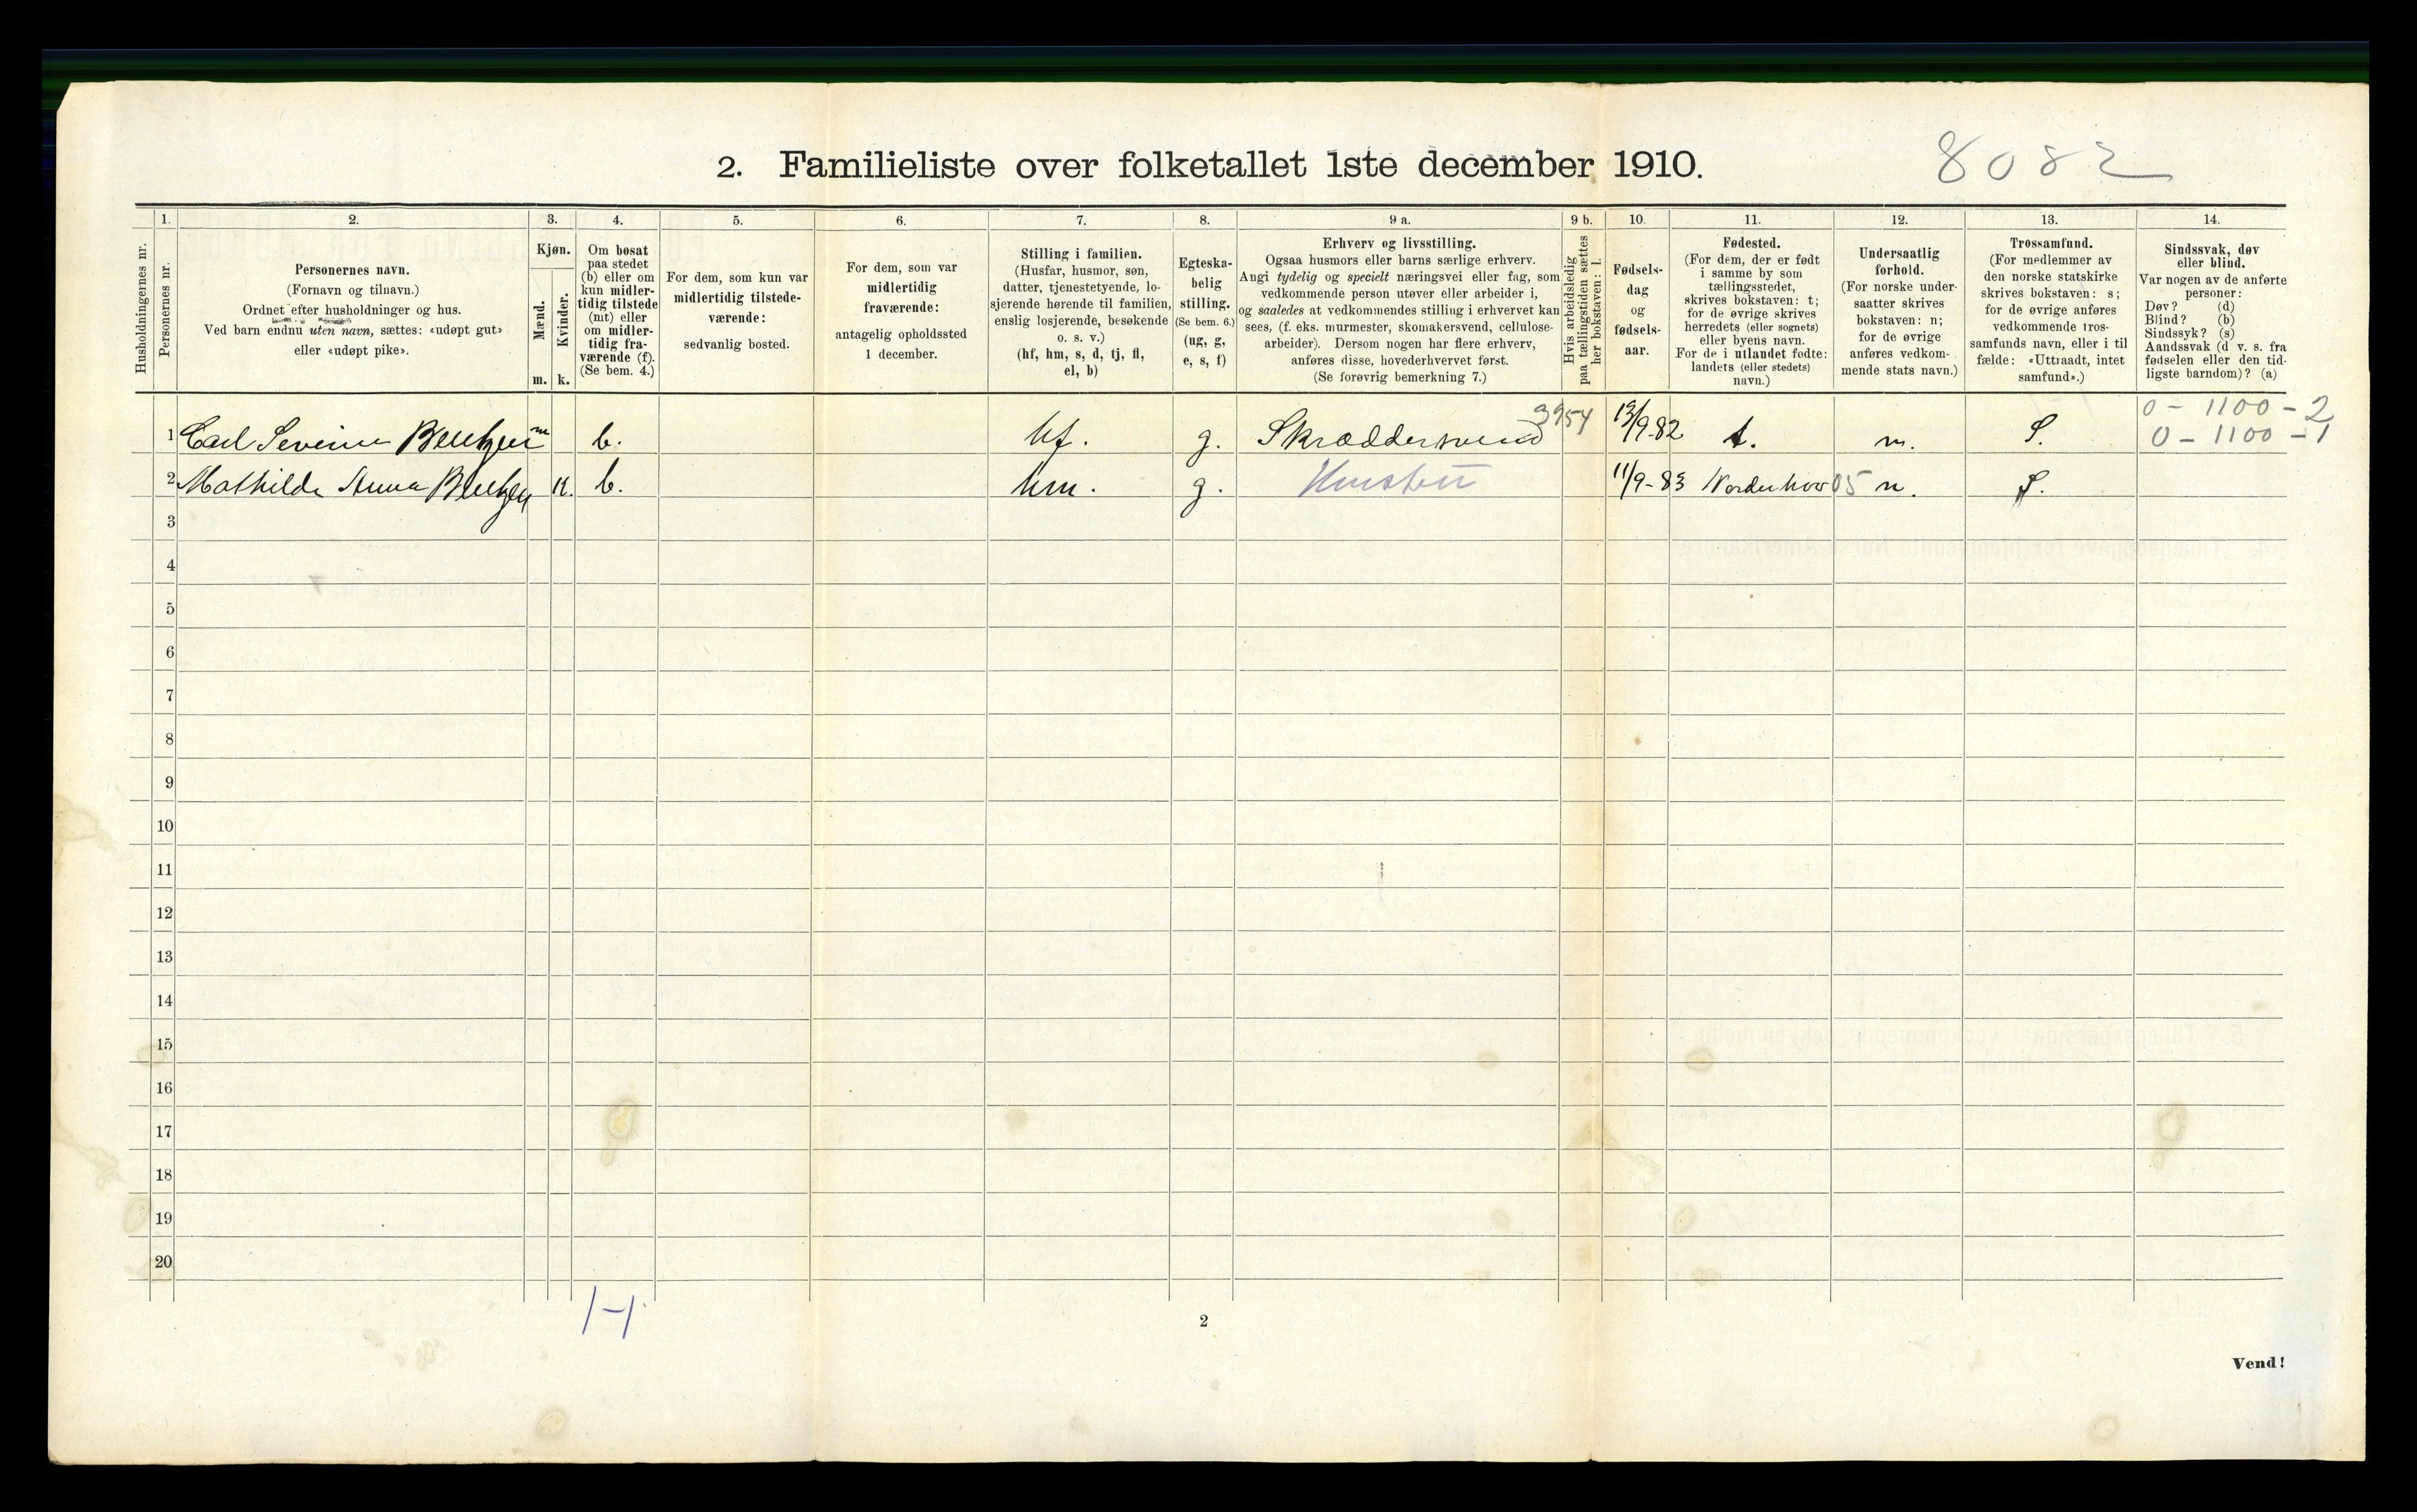 2. Familieliste over folketallet 1ste december 1910.
8082
Husholdningernes nr.
1.
Personernes nr.
2.
Personernes navn.
(Fornavn og tilnavn.)
Ordnet efter husholdninger og hus.
Ved barn endnu uten navn, sættes: «udøpt gut»
eller «udøpt pike».
3.
Kjøn.
Mænd.
Kvinder.
m. k.
4.
Om bosat
paa stedet
(b) eller om
kun midler-
tidig tilstede
(mt) eller
om midler-
tidig fra-
værende (f).
(Se bem. 4.)
5.
For dem, som kun var
midlertidig tilstede-
værende:
sedvanlig bosted.
6.
For dem, som var
midlertidig
fraværende:
antagelig opholdssted
1 december.
7.
Stilling i familien.
(Husfar, husmor, søn,
datter, tjenestetyende, lo-
sjerende hørende til familien,
enslig losjerende, besøkende
o. s. v.)
(hf, hm, s, d, tj, fl,
el, b)
8.
Egteska-
belig
stilling.
(Se bem. 6.)
(ug, g,
e, s, f)
9 a.
Erhverv og livsstilling.
Ogsaa husmors eller barns særlige erhverv.
Angi tydelig og specielt næringsvei eller fag, som
vedkommende person utøver eller arbeider i,
og saaledes at vedkommendes stilling i erhvervet kan
sees, (f. eks. murmester, skomakersvend, cellulose-
arbeider). Dersom nogen har flere erhverv,
anføres disse, hovederhvervet først.
(Se forøvrig bemerkning 7.)
9 b.
Hvis arbeidsledig
paa tællingstiden sættes
her bokstaven: l.
10.
Fødsels-
dag
og
fødsels-
aar.
11.
Fødested.
(For dem, der er født
i samme by som
tællingsstedet,
skrives bokstaven: t;
for de øvrige skrives
herredets (eller sognets)
eller byens navn.
For de i utlandet fødte:
landets (eller stedets)
navn.)
12.
Undersaatlig
forhold.
(For norske under-
saatter skrives
bokstaven: n;
for de øvrige
anføres vedkom-
mende stats navn.)
13.
Trossamfund.
(For medlemmer av
den norske statskirke
skrives bokstaven: s;
for de øvrige anføres
vedkommende tros-
samfunds navn, eller i til
fælde: «Uttraadt, intet
samfund».)
14.
Sindssvak, døv
eller blind.
Var nogen av de anførte
personer:
Døv? (d)
Blind? (b)
Sindssyk? (s)
Aandssvak (d v. s. fra
fødselen eller den tid-
ligste barndom)? (a)
0 - 1100 - 2
1 Carl Severin Bentzen m b. hf. g. Skræddersvend 3954 t. n. S. 0 - 1100 - 1
2 Mathilde Anna Bentzen k. b. hm. g. 11/9-83 Norderhov 05 n. S.
3
4
5
6
7
8
9
10
11
12
13
14
15
16
17
18
19
20
1-1
2
Vend!